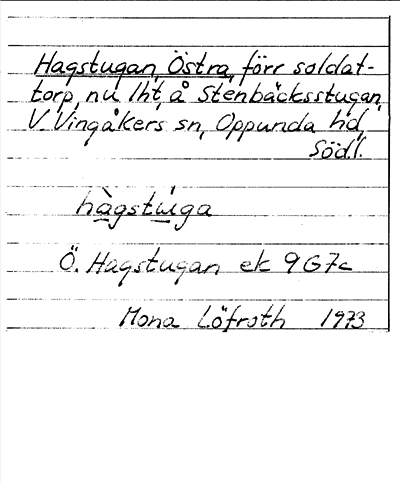 Hagstugan, Östra, förr soldat-
torp, nu lht, å Stenbäcksstugan,
V. Vingåkers sn, Oppunda hd,
Södl.
hàgstu̇ga
Ö. Hagstugan ek 9G7c
Mona Löfroth 1973